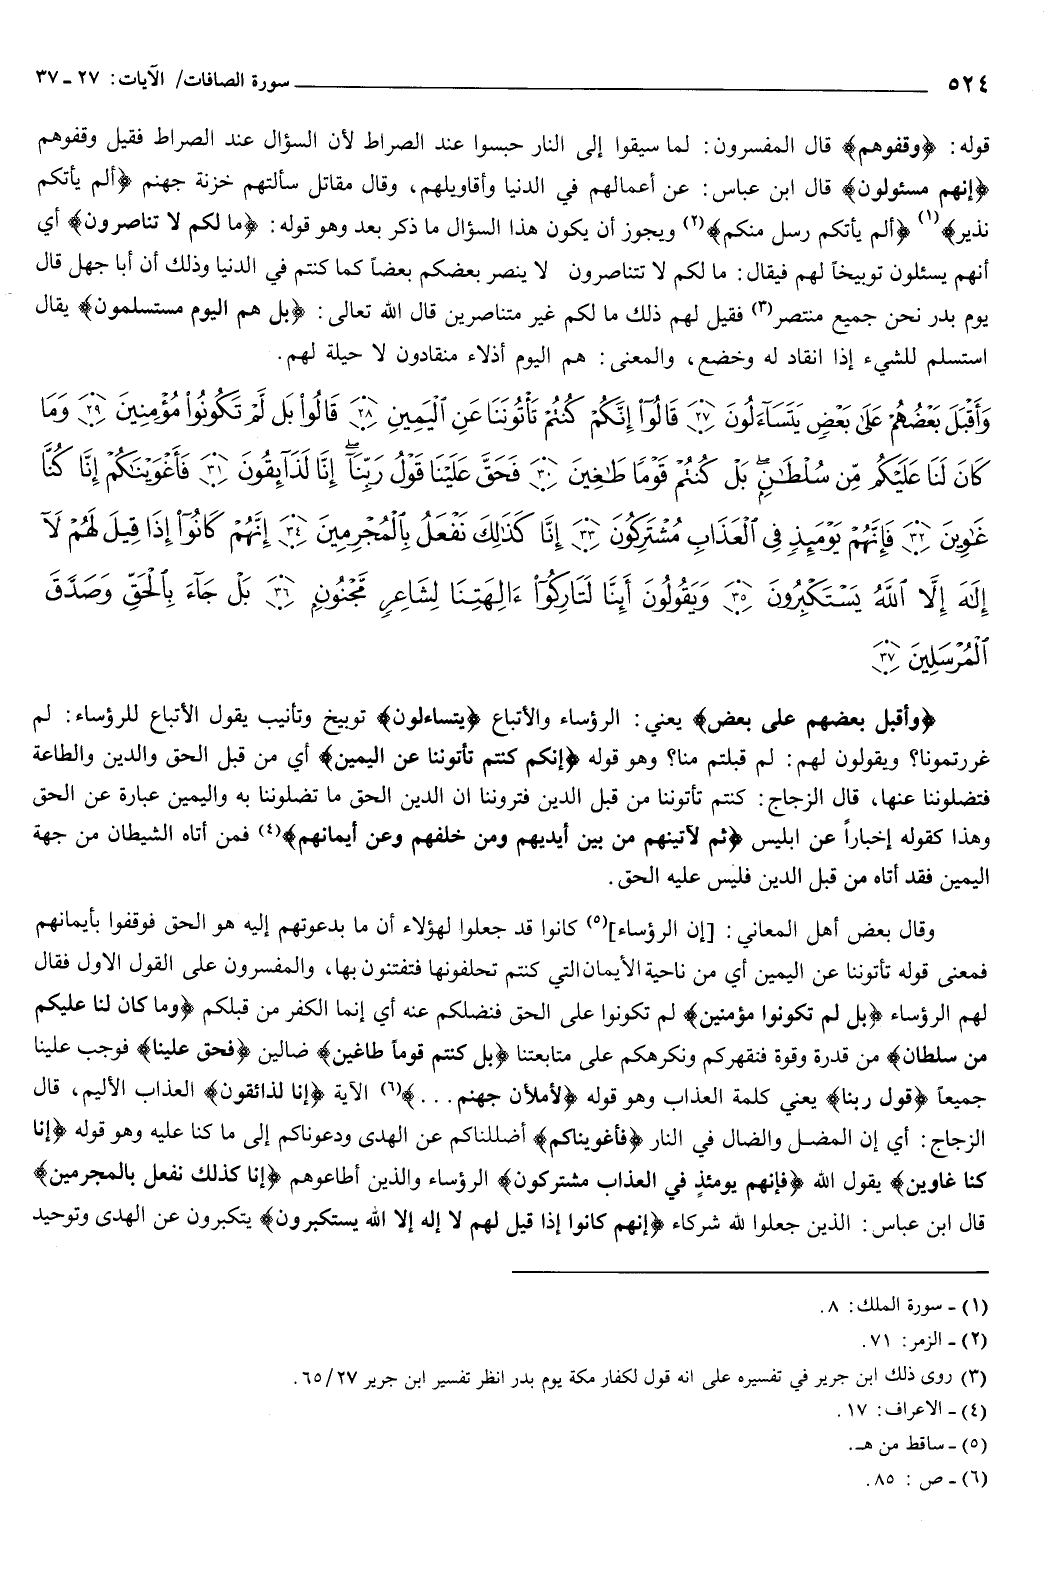 ٥٢٤ سورة الصافات/ الآيات: ٢٧ ـ ٣٧
قوله: ﴿وقفوهم﴾ قال المفسرون: لما سيقوا إلى النار حبسوا عند الصراط لأن السؤال عند الصراط فقيل وقفوهم
﴿إنهم مسئولون﴾ قال ابن عباس: عن أعمالهم في الدنيا وأقاويلهم، وقال مقاتل سألتهم خزنة جهنم ﴿ألم يأتكم
نذير﴾(١) ﴿ألم يأتكم رسل منكم﴾(٢) ويجوز أن يكون هذا السؤال ما ذكر بعد وهو قوله: ﴿ما لكم لا تناصرون﴾ أي
أنهم يسئلون توبيخاً لهم فيقال: ما لكم لا تتناصرون لا ينصر بعضكم بعضاً كما كنتم في الدنيا وذلك أن أبا جهل قال
يوم بدر نحن جميع منتصر(٣) فقيل لهم ذلك ما لكم غير متناصرين قال الله تعالى: ﴿بل هم اليوم مستسلمون﴾ يقال
استسلم للشيء إذا انقاد له وخضع، والمعنى: هم اليوم أذلاء منقادون لا حيلة لهم.
وَأَقْبَلَ بَعْضُهُمْ عَلَىٰ بَعْضٍ يَتَسَآءَلُونَ ٢٧ قَالُوٓا۟ إِنَّكُمْ كُنتُمْ تَأْتُونَنَا عَنِ ٱلْيَمِينِ ٢٨ قَالُوا۟ بَل لَّمْ تَكُونُوا۟ مُؤْمِنِينَ ٢٩ وَمَا
كَانَ لَنَا عَلَيْكُم مِّن سُلْطَٰنٍۭ ۖ بَلْ كُنتُمْ قَوْمًا طَٰغِينَ ٣٠ فَحَقَّ عَلَيْنَا قَوْلُ رَبِّنَآ ۖ إِنَّا لَذَآئِقُونَ ٣١ فَأَغْوَيْنَٰكُمْ إِنَّا كُنَّا
غَٰوِينَ ٣٢ فَإِنَّهُمْ يَوْمَئِذٍ فِى ٱلْعَذَابِ مُشْتَرِكُونَ ٣٣ إِنَّا كَذَٰلِكَ نَفْعَلُ بِٱلْمُجْرِمِينَ ٣٤ إِنَّهُمْ كَانُوٓا۟ إِذَا قِيلَ لَهُمْ لَآ
إِلَٰهَ إِلَّا ٱللَّهُ يَسْتَكْبِرُونَ ٣٥ وَيَقُولُونَ أَئِنَّا لَتَارِكُوٓا۟ ءَالِهَتِنَا لِشَاعِرٍ مَّجْنُونٍۭ ٣٦ بَلْ جَآءَ بِٱلْحَقِّ وَصَدَّقَ
ٱلْمُرْسَلِينَ ٣٧
﴿وأقبل بعضهم على بعض﴾ يعني: الرؤساء والأتباع ﴿يتساءلون﴾ توبيخ وتأنيب يقول الأتباع للرؤساء: لم
غررتمونا؟ ويقولون لهم: لم قبلتم منا؟ وهو قوله ﴿إنكم كنتم تأتوننا عن اليمين﴾ أي من قبل الحق والدين والطاعة
فتضلوننا عنها، قال الزجاج: كنتم تأتوننا من قبل الدين فتروننا ان الدين الحق ما تضلوننا به واليمين عبارة عن الحق
وهذا كقوله إخباراً عن ابليس ﴿ثم لآتينهم من بين أيديهم ومن خلفهم وعن أيمانهم﴾(٤) فمن أتاه الشيطان من جهة
اليمين فقد أتاه من قبل الدين فليس عليه الحق.
وقال بعض أهل المعاني: [إن الرؤساء](٥) كانوا قد جعلوا لهؤلاء أن ما بدعوتهم إليه هو الحق فوقفوا بأيمانهم
فمعنى قوله تأتوننا عن اليمين أي من ناحية الأيمان التي كنتم تحلفونها فتفتنون بها، والمفسرون على القول الاول فقال
لهم الرؤساء ﴿بل لم تكونوا مؤمنين﴾ لم تكونوا على الحق فنضلكم عنه أي إنما الكفر من قبلكم ﴿وما كان لنا عليكم
من سلطان﴾ من قدرة وقوة فنقهركم ونكرهكم على متابعتنا ﴿بل كنتم قوماً طاغين﴾ ضالين ﴿فحق علينا﴾ فوجب علينا
جميعاً ﴿قول ربنا﴾ يعني كلمة العذاب وهو قوله ﴿لأملأن جهنم...﴾(٦) الآية ﴿إنا لذائقون﴾ العذاب الأليم، قال
الزجاج: أي إن المضل والضال في النار ﴿فأغويناكم﴾ أضللناكم عن الهدى ودعوناكم إلى ما كنا عليه وهو قوله ﴿إنا
كنا غاوين﴾ يقول الله ﴿فإنهم يومئذٍ في العذاب مشتركون﴾ الرؤساء والذين أطاعوهم ﴿إنا كذلك نفعل بالمجرمين﴾
قال ابن عباس: الذين جعلوا لله شركاء ﴿إنهم كانوا إذا قيل لهم لا إله إلا الله يستكبرون﴾ يتكبرون عن الهدى وتوحيد
(١) ـ سورة الملك: ٨.
(٢) ـ الزمر: ٧١.
(٣) روى ذلك ابن جرير في تفسيره على انه قول لكفار مكة يوم بدر انظر تفسير ابن جرير ٢٧/ ٦٥.
(٤) ـ الاعراف: ١٧.
(٥) ـ ساقط من هـ.
(٦) ـ ص: ٨٥.